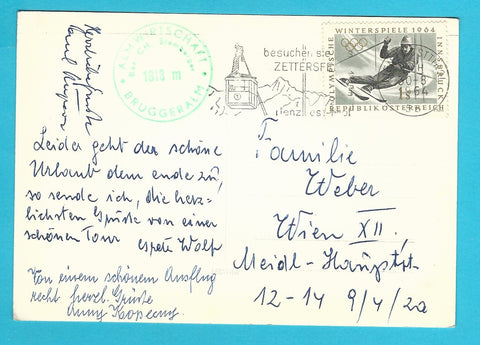 Herzlichste Grüße
ALMWIRTSCHAFT
1818 m
BRUGGERALM
besuchen sie
ZETTERSF
OLYMPISCHE WINTERSPIELE 1964 INNSBRUCK
REPUBLIK ÖSTERREICH
Leider geht der schöne
Urlaub dem ende zu,
so sende ich, die herz-
lichsten Grüße von einer
schönen Tour Wolf
Von einem schönem Ausflug
recht herzl. Grüße
Anny Kopecny
Familie
Weber
Wien XII,
Meidl-Hauptstr.
12-14 9/4/20